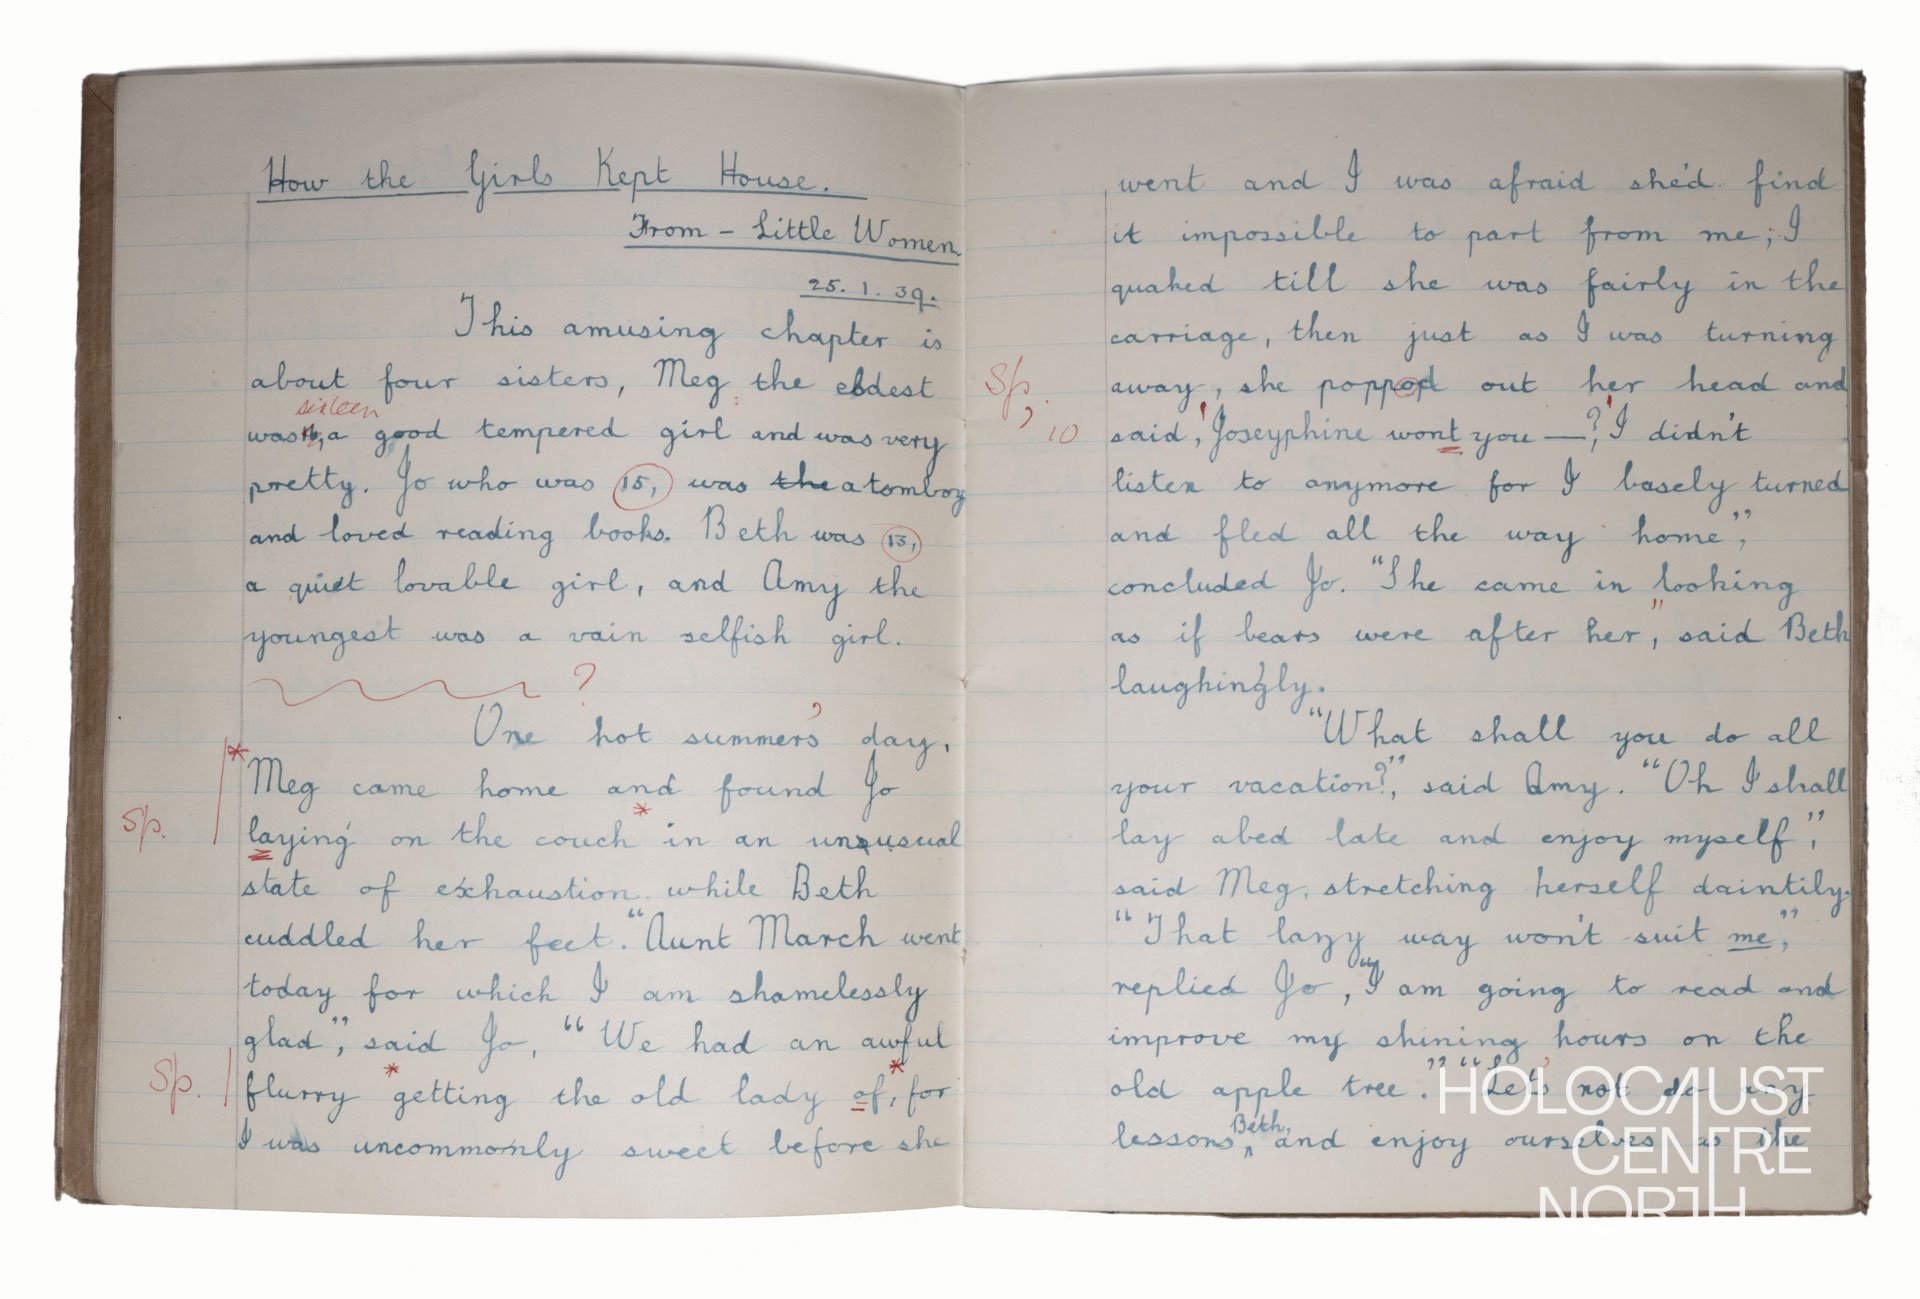 How the Girls Kept House.
From - Little Women.
25. 1. 39.
This amusing chapter is
about four sisters, Meg the eldest
sixteen
was 16, a good tempered girl and was very
pretty. Jo who was 15, was the a tomboy
and loved reading books. Beth was 13,
a quiet lovable girl, and Amy the
youngest was a vain selfish girl.
?
One hot summers' day,
* Meg came home and found Jo
Sp. laying on the couch * in an unusual
state of exhaustion while Beth
cuddled her feet. "Aunt March went
today for which I am shamelessly
glad", said Jo, "We had an awful
Sp. flurry * getting the old lady of, * for
I was uncommonly sweet before she
went and I was afraid she'd find
it impossible to part from me; I
quaked till she was fairly in the
carriage, then just as I was turning
Sp. away, she poppod out her head and
, 10 said, 'Joseyphine wont you —?' I didn't
listen to anymore for I basely turned
and fled all the way home",
concluded Jo. "She came in looking
as if bears were after her", said Beth
laughingly.
"What shall you do all
your vacation?", said Amy. "Oh I shall
lay abed late and enjoy myself",
said Meg, stretching herself daintily.
"That lazy way won't suit me",
replied Jo, "I am going to read and
improve my shining hours on the
old apple tree." "Let's not do any
Beth,
lessons, and enjoy ourselves as the
HOLOCAUST
CENTRE
NORTH